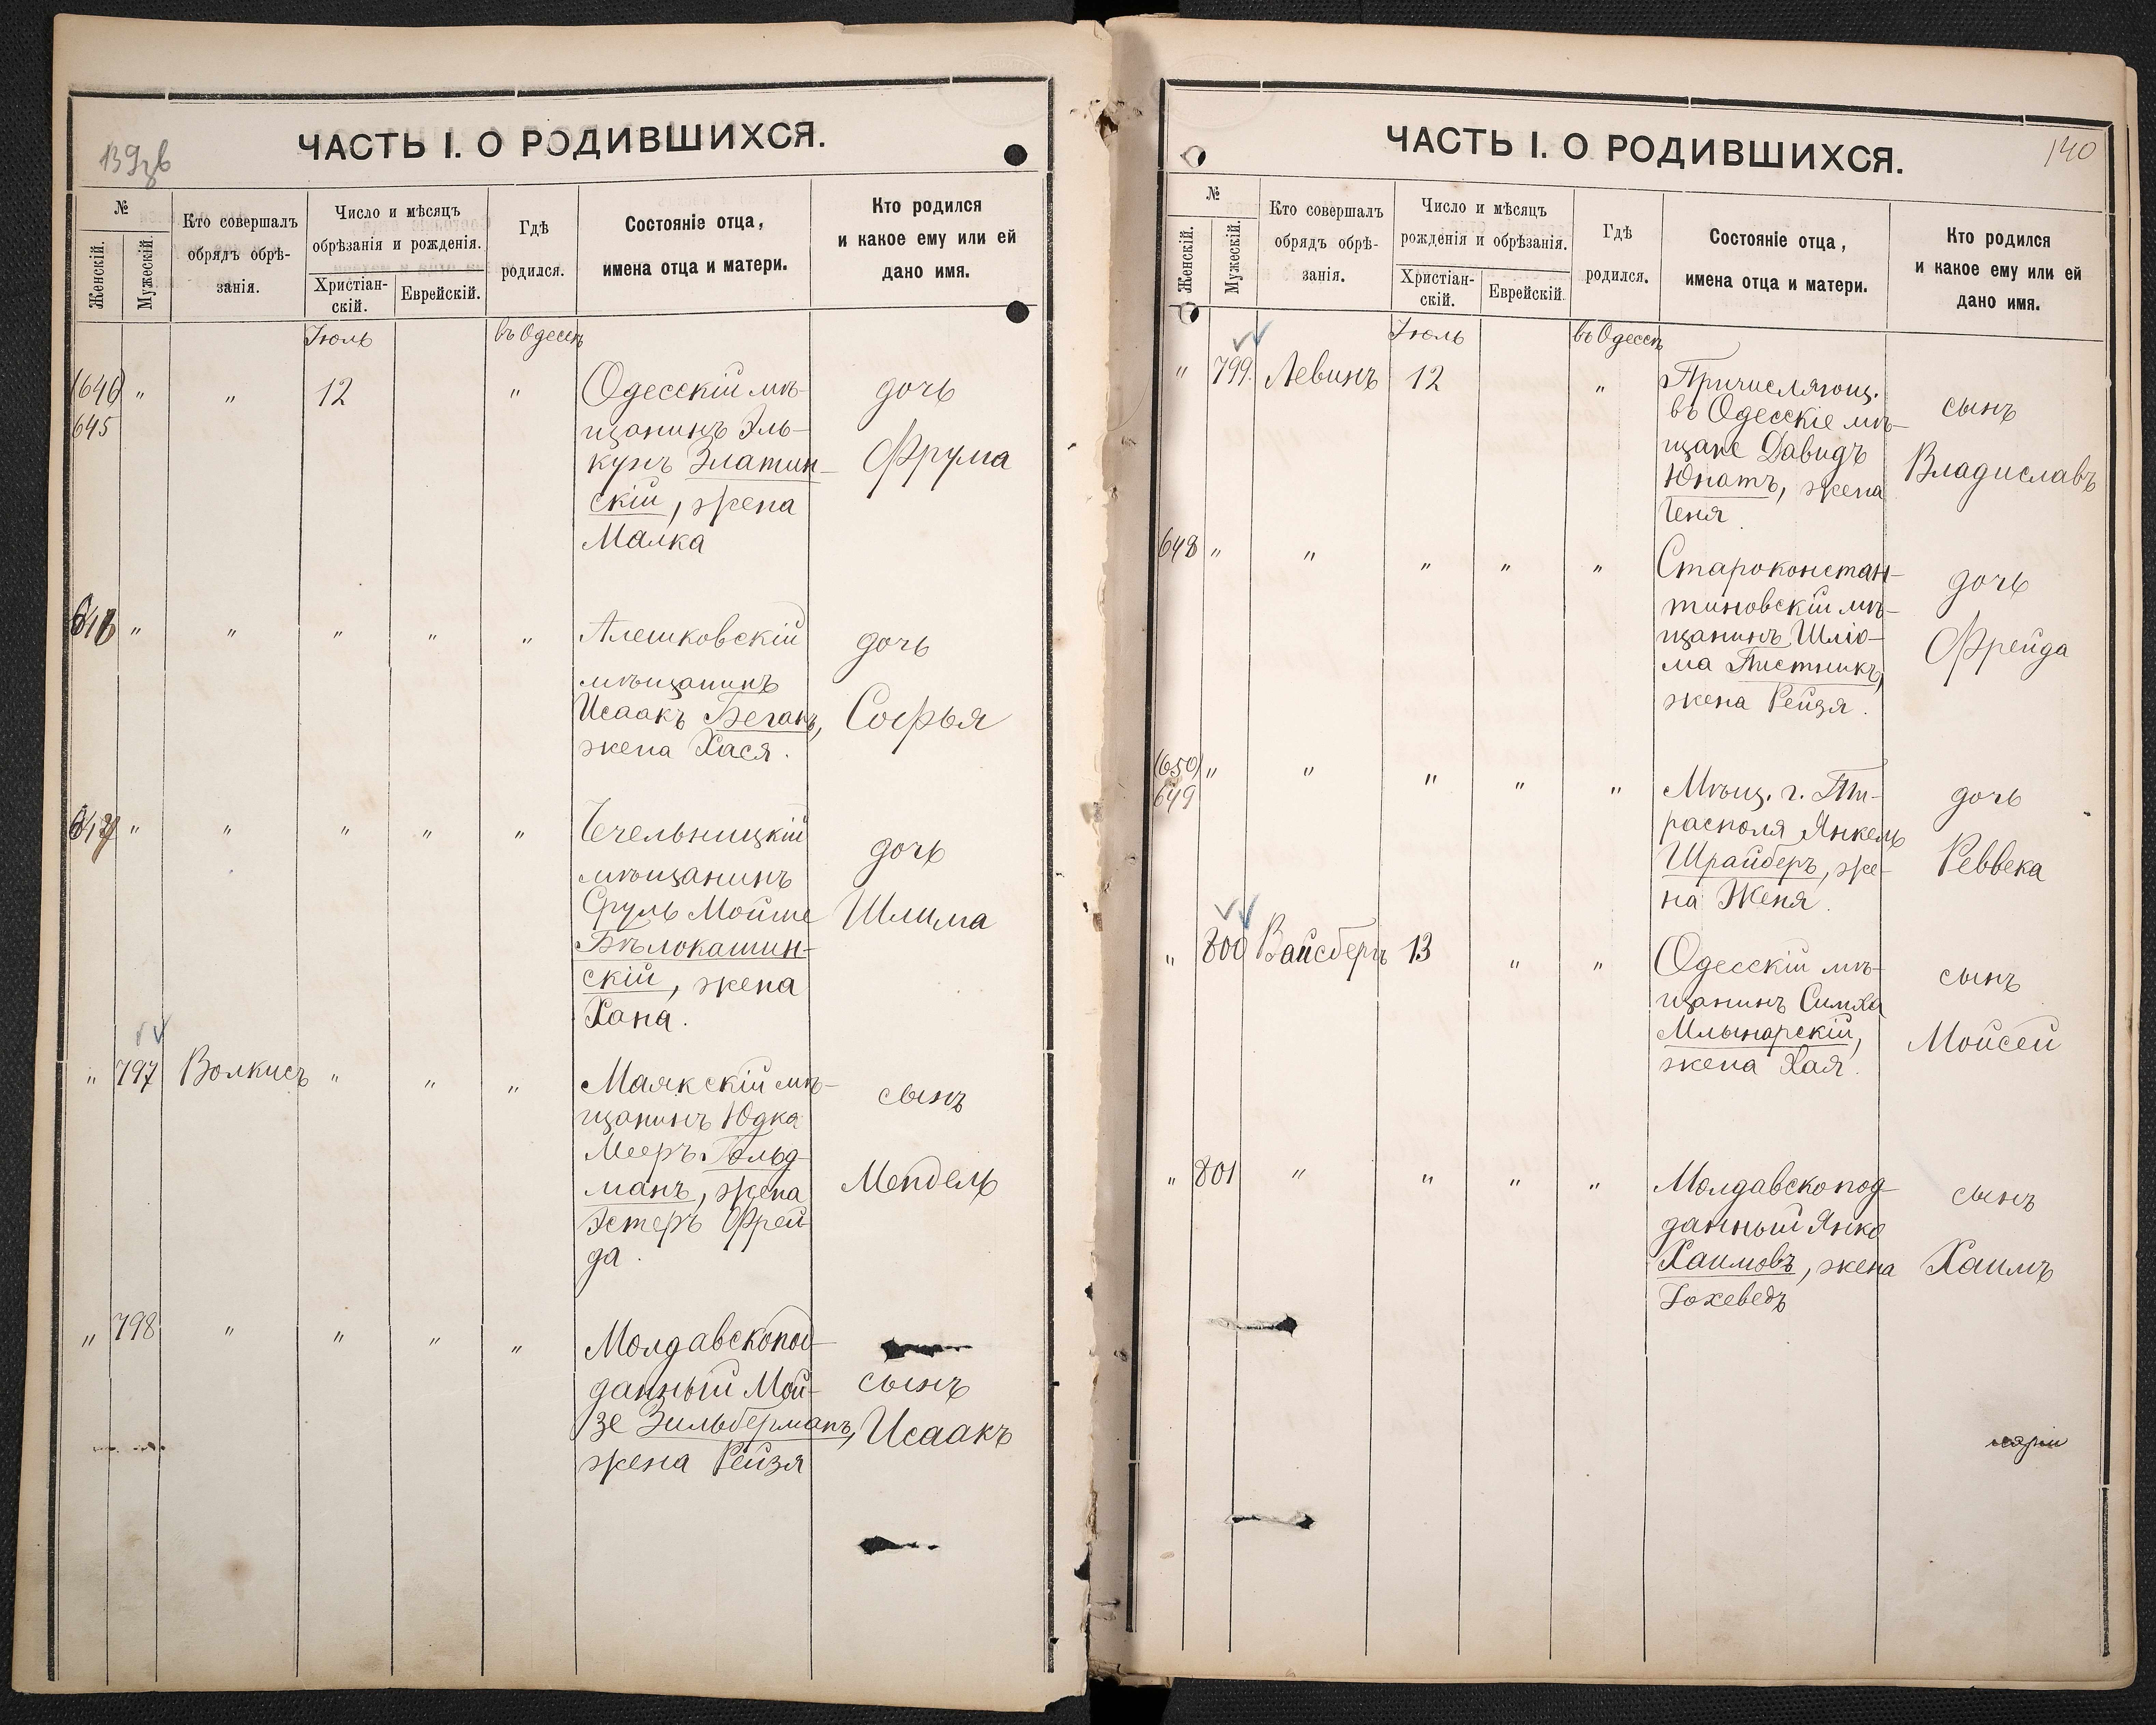 139 зв
ЧАСТЬ I. О РОДИВШИХСЯ.
№
Женскій.
Мужескій.
Кто совершалъ
обрядъ обрѣ-
занія.
Число и мѣсяцъ
обрѣзанія и рожденія.
Христіан-
скій.
Еврейскій.
Гдѣ
родился.
Состояніе отца,
имена отца и матери.
Кто родился
и какое ему или ей
дано имя.
Іюль
въ Одессѣ
(646) " " 12 "
645
Одесскій мѣ-
щанинъ Эль-
кунъ Златин-
скій, жена
Малка
дочь
Фрума
" " " " "
Алешковскій
мѣщанинъ
Исаакъ Беганъ,
жена Хася.
дочь
Софья
" " " " "
Чечельницкій
мѣщанинъ
Сруль Мойше
Бѣлокашин-
скій, жена
Хана.
дочь
Шлима
" 797 Волкисъ " " "
Маякскій мѣ-
щанинъ Юдка
Мееръ Гольд-
манъ, жена
Эстеръ Фрей
да.
сынъ
Мендель
" 798 " " " "
Молдавскопод-
данный Мой-
зе Зильберманъ,
жена Рейзя
сынъ
Исаакъ
140
ЧАСТЬ I. О РОДИВШИХСЯ.
№
Женскій.
Мужескій.
Кто совершалъ
обрядъ обрѣ-
занія.
Число и мѣсяцъ
рожденія и обрѣзанія.
Христіан-
скій.
Еврейскій.
Гдѣ
родился.
Состояніе отца,
имена отца и матери.
Кто родился
и какое ему или ей
дано имя.
Іюль
въ Одессѣ
" 799. Левинъ 12 "
Причисляющ.
въ Одесскіе мѣ-
щане Давидъ
Юнатъ, жена
Геня.
сынъ
Владиславъ
648 " " " " "
Староконстан-
тиновскій мѣ-
щанинъ Шлio-
ма Пистникъ,
жена Рейзя.
дочь
Фрейда
(650) " " " " "
649
Мѣщ. г. Ти-
располя Янкель
Шрайберъ, же-
на Женя.
дочь
Реввека
" 800 Вайсбергъ 13 " "
Одесскій мѣ-
щанинъ Симха
Млынарскій,
жена Хая.
сынъ
Мойсей
" 801 " " " "
Молдавскопод-
данный Янко
Хаимовъ, жена
Іохеведъ
сынъ
Хаимъ